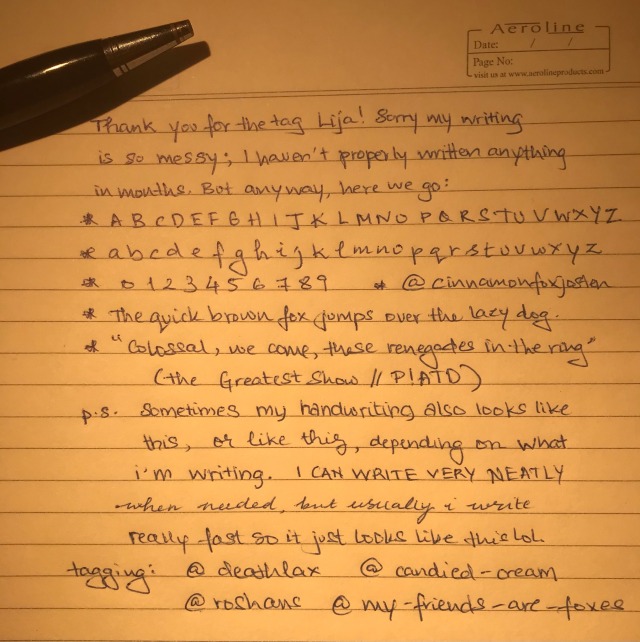 Aeroline
Date: / /
Page No:
visit us at www.aerolineproducts.com
Thank you for the tag Lija! Sorry my writing
is so messy; I haven't properly written anything
in months. But anyway, here we go:
* A B C D E F G H I J K L M N O P Q R S T U V W X Y Z
* a b c d e f g h i j k l m n o p q r s t u v w x y z
* 0 1 2 3 4 5 6 7 8 9 * @cinnamonfoxjosten
* The quick brown fox jumps over the lazy dog.
* "Colossal, we come, these renegades in the ring"
(the Greatest Show // P!ATD)
p.s. Sometimes my handwriting also looks like
this, or like this, depending on what
i'm writing. I CAN WRITE VERY NEATLY
when needed, but usually i write
really fast so it just looks like this lol.
tagging: @deathlax @candied-cream
@roshans @my-friends-are-foxes